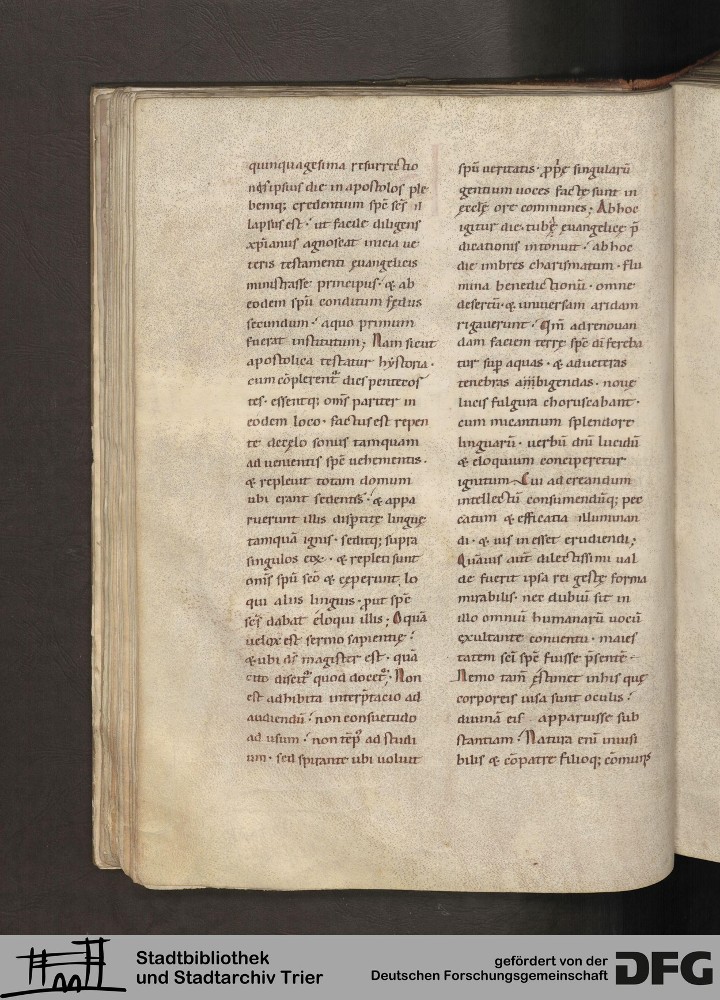 quinquagesima resurrectio
nẹs ipsius die in apostolos ple
bemq; credentium spc̄ scs̄ il
lapsus est.' ut facile diligens
xp̄ianus agnoscat inicia ue
teris testamenti euangelicis
ministrasse principiis.' & ab
eodem spū conditum fędus
secundum.' a quo primum
fuerat institutum; Nam sicut
apostolica testatur hẏstoria.
cum cōplerent᷑ dies pentecos
tes. essentq; om̄s pariter in
eodem loco. factus est repen
te de cęlo sonus tamquam
aduenientis spc̄ uehementis.
& repleuit totam domum
ubi erant sedentes.' & appa
ruerunt illis disptitę linguę
tamquā ignis. seditq; supra
singulos eoꝝ. & repleti sunt
om̄s spū scō & cęperunt lo
qui aliis linguis. ꝓut spc̄
scs̄ dabat eloqui illis; O quā
uelox est sermo sapientię.'
& ubi ds̄ magister est. quā
cito discit᷑ quod docet᷑; Non
est adhibita interp̄tacio ad
audiendū.' non consuetudo
ad usum.' non tēp᷒ ad studi
um. sed spirante ubi uoluit
spū ueritatis. ꝓpę singularū
gentium uoces factę sunt in
ęcclę ore communes; Ab hoc
igitur die tubę ęuangelicę p̄
dicationis intonuit.' ab hoc
die imbres charismatum. flu
mina benedictionū. omne
desertū. & uniuersam aridam
rigauerunt.' Qm̄ ad renouan
dam faciem terrę spc̄ dī fereba
tur sup̄ aquas. & ad ueteras
tenebras abigendas. nouę
lucis fulgura choruscabant.
cum micantium splendore
linguarū. uerbū dnī lucidū
& eloquium conciperetur
ignitum Cui ad creandum
intellectū consumendūq; pec
catum & efficatia illuminan
di. & uis inesset erudiendi;
Quāuis aut̄ dilectissimi ual
de fuerit ipsa rei gestę forma
mirabilis. nec dubiū sit in
illo omniū humanarū uocū
exultante conuentu. maies
tatem sc̄i spc̄ fuisse p̄sentē.
Nemo tam̄ ęstimet in his quę
corporeis uisa sunt oculis.'
diuinā eis apparuisse sub
stantiam.' Natura enī inuisi
bilis & cū patre filioq; cōmunis
Stadtbibliothek
und Stadtarchiv Trier
gefördert von der
Deutschen Forschungsgemeinschaft
DFG